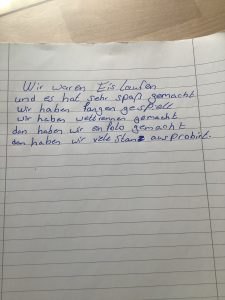 Wir waren Eis laufen
und es hat sehr spaß gemacht
wir haben fangen gespielt
wir haben wettrennen gemacht
dan haben wir en foto gemacht
dan haben wir viele ausprobirt.